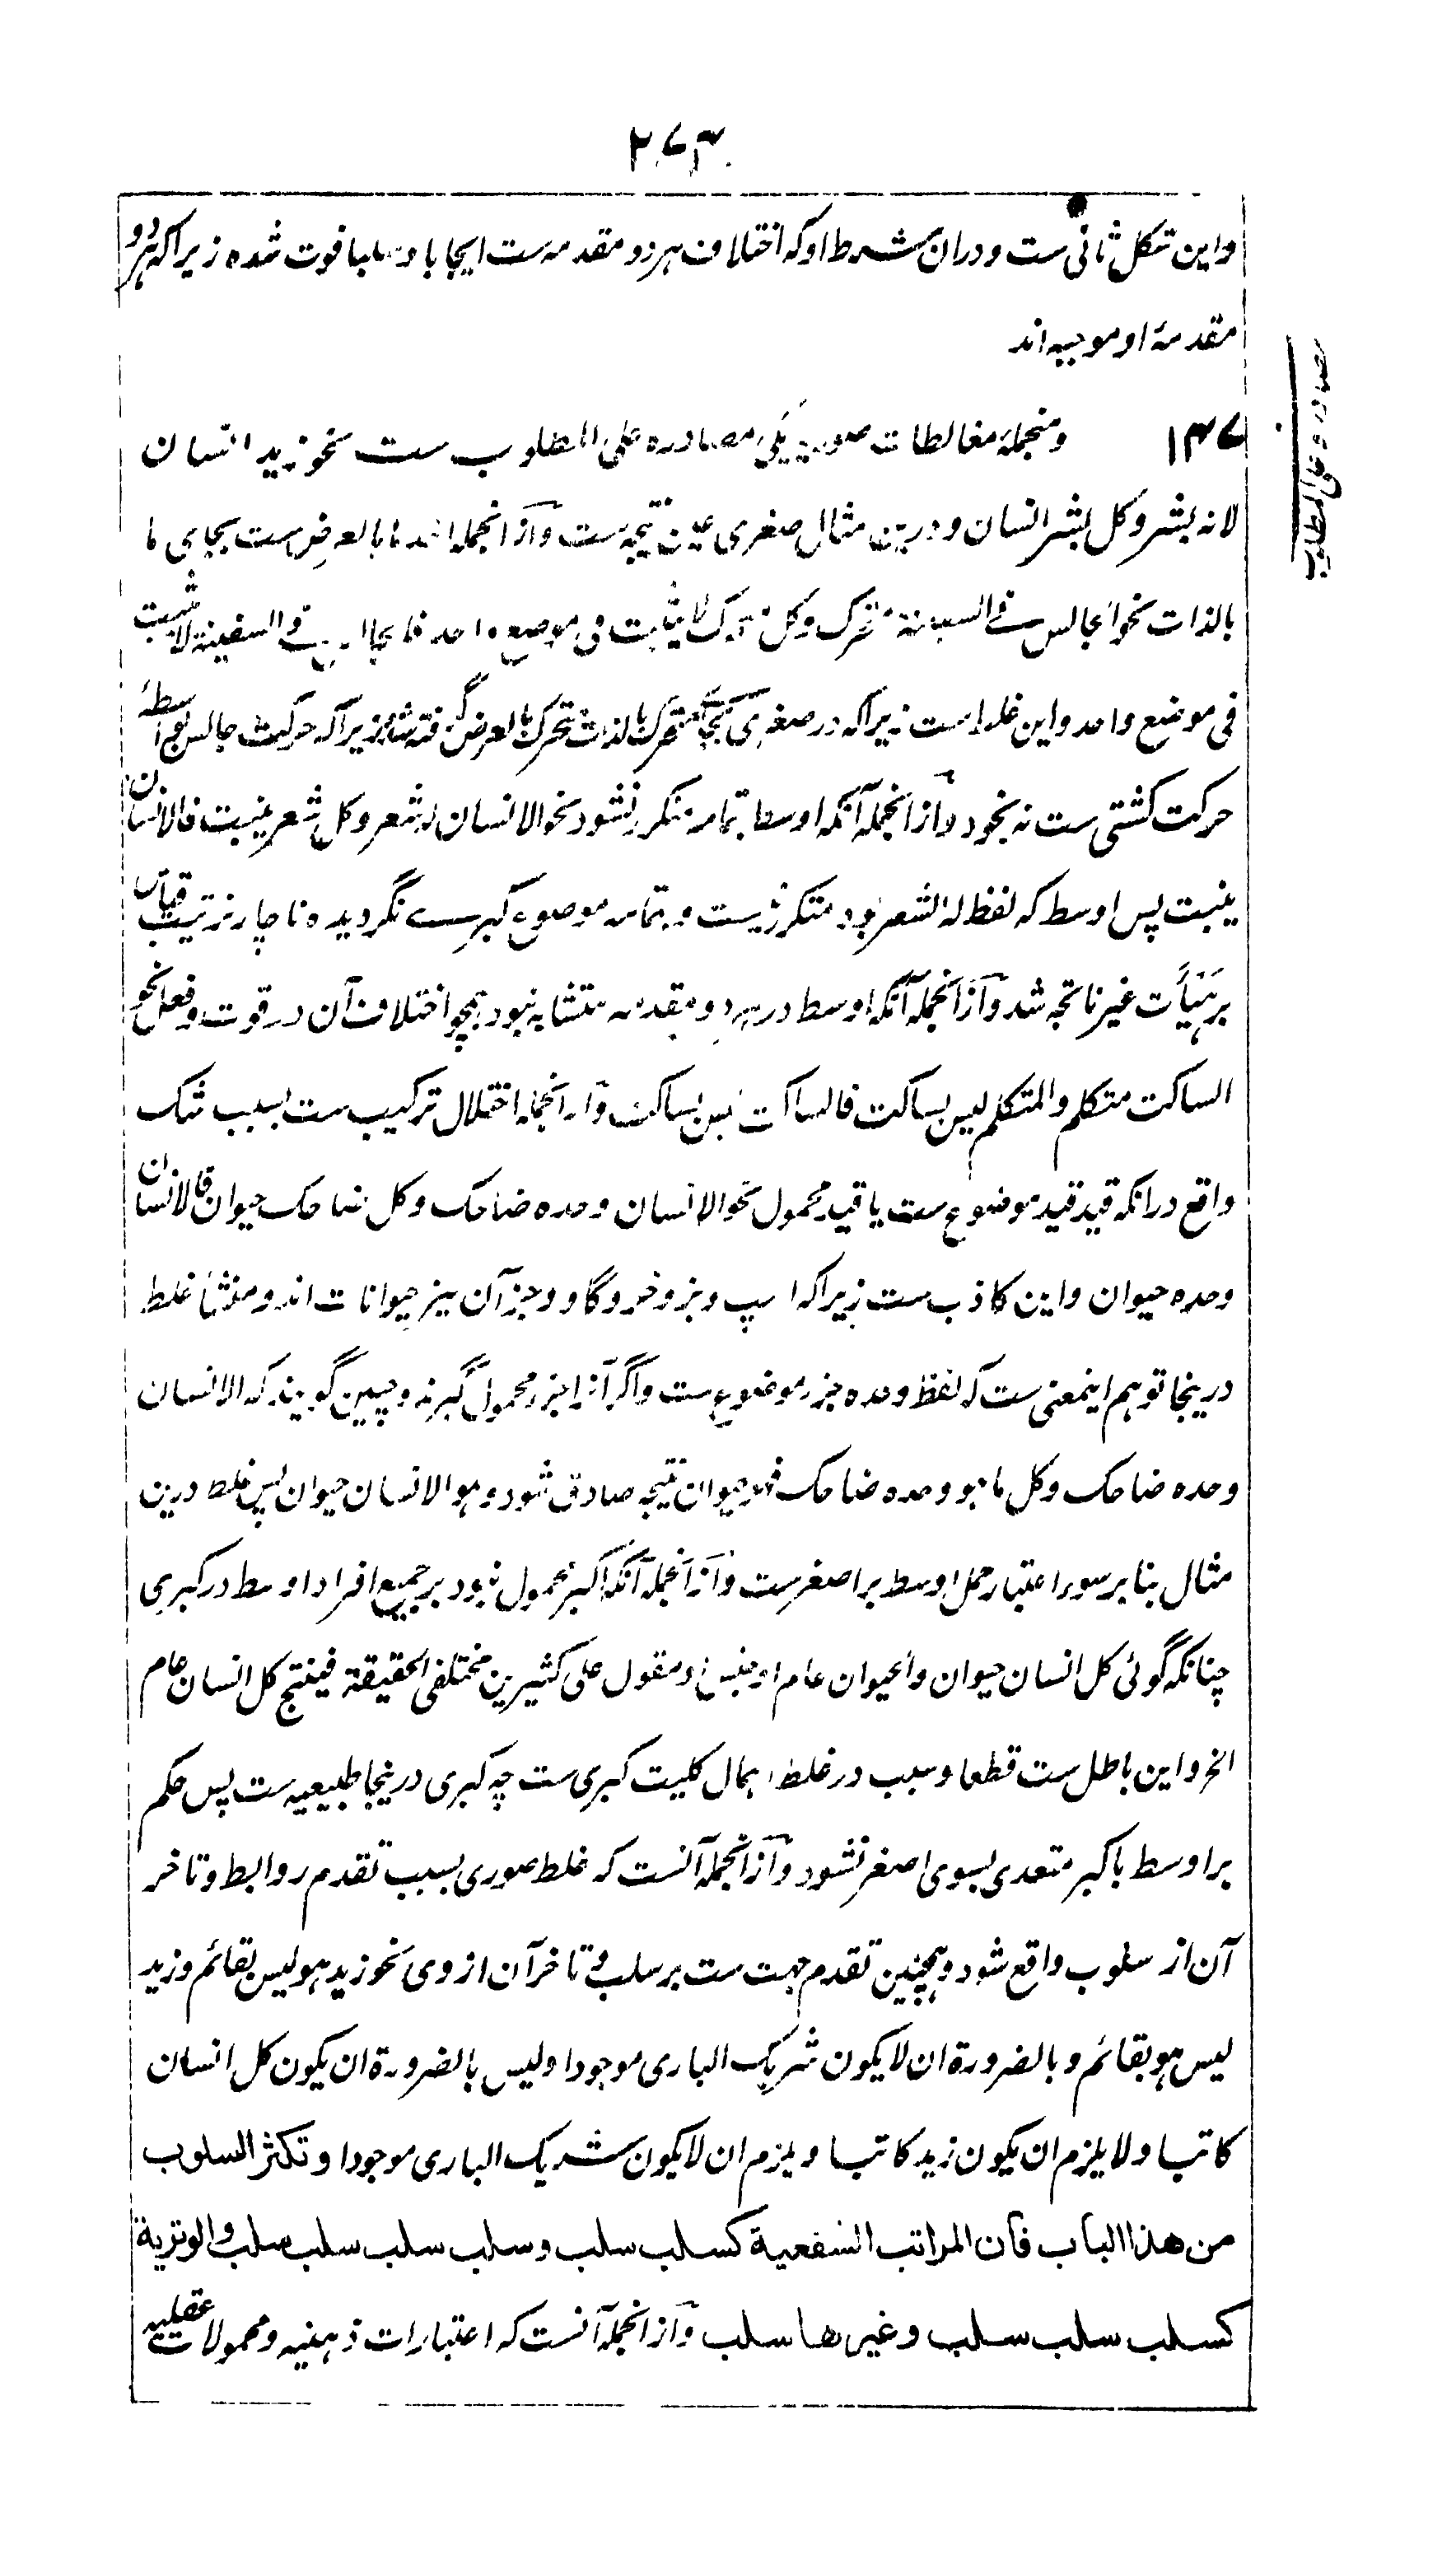 ۲۷۳
واین شکل ثانی ست و دران شرط او که اختلاف هر دو مقدمه ست ایجابا و سلبا فوت شده زیراکه هر دو
مقدمهٔ او موجبه اند
۱۳۷ ومنجملهٔ مغالطات صوریه یکی مصادره علی المطلوب ست نحو زید انسان
لانه بشر و کل بشر انسان و درین مثال صغری عین نتیجه ست و ازانجمله اخذ ما بالعرض ست بجای ما
بالذات نحو الجالس فی السفینة متحرک و کل متحرک لا یثبت فی موضع واحد فالجالس فی السفینة لا یثبت
فی موضع واحد و این غلط ست زیراکه در صغری بجای متحرک بالذات متحرک بالعرض گرفته شد زیراکه حرکت جالس بواسطهٔ
حرکت کشتی ست نه بخود و ازانجمله آنکه اوسط بتمامه متکرر نشود نحو الانسان له شعر و کل شعر ینبت فالانسان
ینبت پس اوسط که لفظ له الشعر بود متکرر نیست و بتمامه موضوع کبری نگردیده ناچار ترتیب قیاس
بر هیأت غیر ناتجه شد و ازانجمله آنکه اوسط در هر دو مقدمه متشابه نبود همچو اختلاف آن در قوت و فعل نحو
الساکت متکلم والمتکلم لیس بساکت فالساکت لیس بساکت و ازانجمله اختلال ترکیب ست بسبب شک
واقع درانکه قید قید موضوع ست یا قید محمول نحو الانسان وحده ضاحک و کل ضاحک حیوان فالانسان
وحده حیوان و این کاذب ست زیراکه اسپ و بز و خر و گاو و جز آن نیز حیوانات اند و منشأ غلط
درینجا توهم اینمعنی ست که لفظ وحده جزء موضوع ست و اگر آنرا جزء محمول گیرند و چنین گویند که الانسان
وحده ضاحک و کل ما هو وحده ضاحک فهو حیوان نتیجه صادق شود و هو الانسان حیوان پس غلط درین
مثال بنا بر سوء اعتبار حمل اوسط بر اصغر ست و ازانجمله آنکه اکبر محمول نبود بر جمیع افراد اوسط در کبری
چنانکه گوئی کل انسان حیوان والحیوان عام او جنس او مقول علی کثیرین مختلفی الحقیقة فینتج کل انسان عام
الخ و این باطل ست قطعا و سبب در غلط اهمال کلیت کبری ست چه کبری درینجا طبیعیه ست پس حکم
بر اوسط باکبر متعدی بسوی اصغر نشود و ازانجمله آنست که غلط صوری بسبب تقدم روابط و تاخر
آن از سلوب واقع شود و همچنین تقدم جهت ست بر سلب و تاخر آن از وی نحو زید هو لیس بقائم و زید
لیس هو بقائم و بالضرورة ان لا یکون شریک الباری موجودا و لیس بالضرورة ان یکون کل انسان
کاتبا و لا یلزم ان یکون زید کاتبا و یلزم ان لا یکون شریک الباری موجودا و تکثر السلوب
من هذا الباب فان المراتب الشفعیة کسلب سلب و سلب سلب سلب سلب والوتریة
کسلب سلب سلب و غیرها سلب و ازانجمله آنست که اعتبارات ذهنیه و محمولات عقلیه